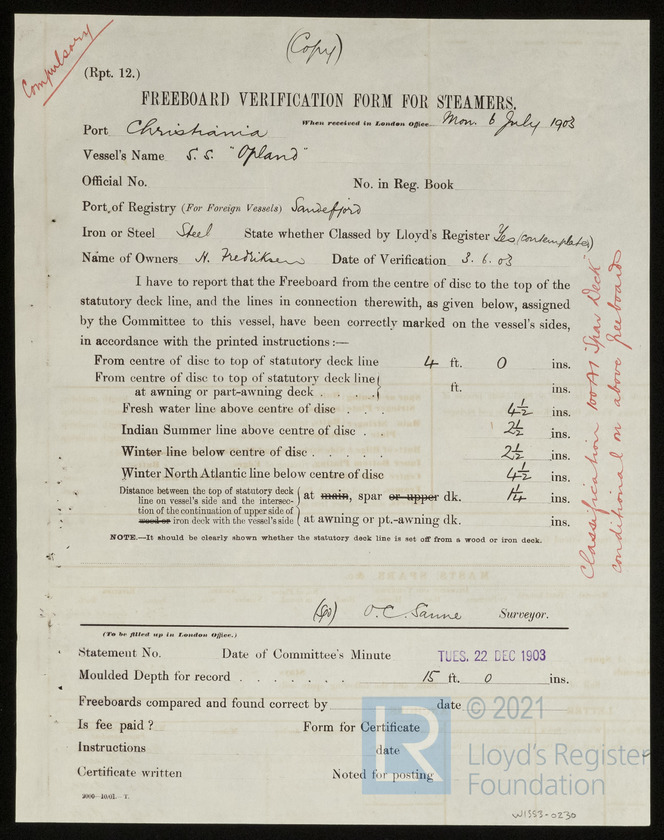 (Copy)
Compulsory
(Rpt. 12.)
FREEBOARD VERIFICATION FORM FOR STEAMERS.
When received in London Office Mon. 6 July 1903
Port Christiania
Vessel's Name S.S. "Opland"
Official No. No. in Reg. Book
Port of Registry (For Foreign Vessels) Sandefjord
Iron or Steel Steel State whether Classed by Lloyd's Register Yes (contemplated)
Name of Owners H. Fredriksen Date of Verification 3.6.03
I have to report that the Freeboard from the centre of disc to the top of the
statutory deck line, and the lines in connection therewith, as given below, assigned
by the Committee to this vessel, have been correctly marked on the vessel's sides,
in accordance with the printed instructions :—
From centre of disc to top of statutory deck line 4 ft. 0 ins.
From centre of disc to top of statutory deck line
at awning or part-awning deck . . . . ft. ins.
Fresh water line above centre of disc . . . 4½ ins.
Indian Summer line above centre of disc . . 2½ ins.
Winter line below centre of disc . . . . . 2½ ins.
Winter North Atlantic line below centre of disc 4½ ins.
Distance between the top of statutory deck
line on vessel's side and the intersec-
tion of the continuation of upper side of
wood or iron deck with the vessel's side
at main, spar or upper dk. 1¼ ins.
at awning or pt.-awning dk. ins.
NOTE.—It should be clearly shown whether the statutory deck line is set off from a wood or iron deck.
Classification 100A1 "Spar Deck"
conditional on above freeboards
(Sd) O.C. Sanne Surveyor.
(To be filled up in London Office.)
Statement No. Date of Committee's Minute TUES. 22 DEC 1903
Moulded Depth for record . . . . . . . 15 ft. 0 ins.
Freeboards compared and found correct by date
Is fee paid ? Form for Certificate
Instructions date
Certificate written Noted for posting
2000—10/01.—T.
© 2021
LR
Lloyd's Register
Foundation
W1553-0230